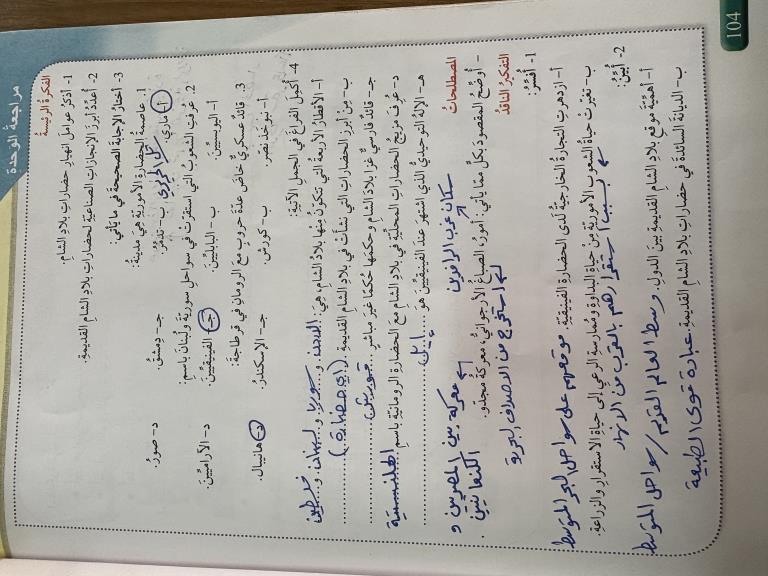 مراجعة الوحدة
الفكرة الرئيسة
1- أذكرُ عواملَ انهيارِ حضاراتِ بلادِ الشامِ.
2- أُعدِّدُ أبرزَ الإنجازاتِ الصناعيّةِ لحضاراتِ بلادِ الشامِ القديمةِ.
3- أختارُ الإجابةَ الصحيحةَ في ما يأتي:
1. عاصمةُ الحضارةِ الأموريّةِ هي مدينةُ:
أ- ماري تل الحريري ب- تدمُرُ. جـ- دِمشقُ. د- صورُ.
2. عُرفتِ الشعوبُ التي استقرّتْ في سواحلِ سوريّةَ ولبنانَ باسمِ:
أ- اليبوسيّينَ. ب- البابليّينَ. جـ- الفينيقيّينَ. د- الآراميّينَ.
3. قائدٌ عسكريٌّ خاضَ عدّةَ حروبٍ معَ الرومانِ في قرطاجةَ:
أ- نبوخذ نصّر. ب- كورش. جـ- الإسكندرُ. د- هانيبال.
4- أُكملُ الفراغَ في الجملِ الآتيةِ:
أ- الأقطارُ الأربعةُ التي تتكوّنُ مِنها بلادُ الشامِ، هي: الاردن و سوريا و لبنان و فلسطين
ب- مِن أبرزِ الحضاراتِ التي نشأتْ في بلادِ الشامِ القديمةِ (اي حضارة)
جـ- قائدٌ فارسيٌّ غزا بلادَ الشامِ وحكمَها حُكمًا غيرَ مباشرٍ قورش
د- عُرفَ مزيجُ الحضاراتِ المحليّةِ في بلادِ الشامِ معَ الحضارةِ الرومانيّةِ باسمِ الهلنستية
هـ- الإلهُ التوحيديُّ الذي اشتهرَ عندَ الفينيقيّينَ هو إيل
المصطلحاتُ
سكان غرب الرافدين معركة بين المصريين و
- أوضّحُ المقصودَ بكلٍّ ممّا يأتي: أمورُو، الصباغُ الأُرجوانيُّ، معركةُ مجدّو. الكنعانيين.
التفكيرُ الناقدُ لي استخرج من الاصداف البحرية
1- أُفسِّرُ:
أ- ازدهرتِ التجارةُ الخارجيّةُ لدى الحضارةِ الفينيقيّةِ. موقعهم على سواحل البحر المتوسط
ب- تغيّرتْ حياةُ الشعوبِ الأموريّةِ مِنْ حياةِ البداوةِ ومُمارسةِ الرعيِ إلى حياةِ الاستقرارِ والزراعةِ.
بسبب استقرارهم بالقرب من الانهار
2- أُبيِّنُ:
أ- أهمّيّةَ موقعِ بلادِ الشامِ القديمةِ بينَ الدولِ. وسط العالم القديم / سواحل المتوسط
ب- الديانةَ السائدةَ في حضاراتِ بلادِ الشامِ القديمةِ. عبادة قوى الطبيعة
104